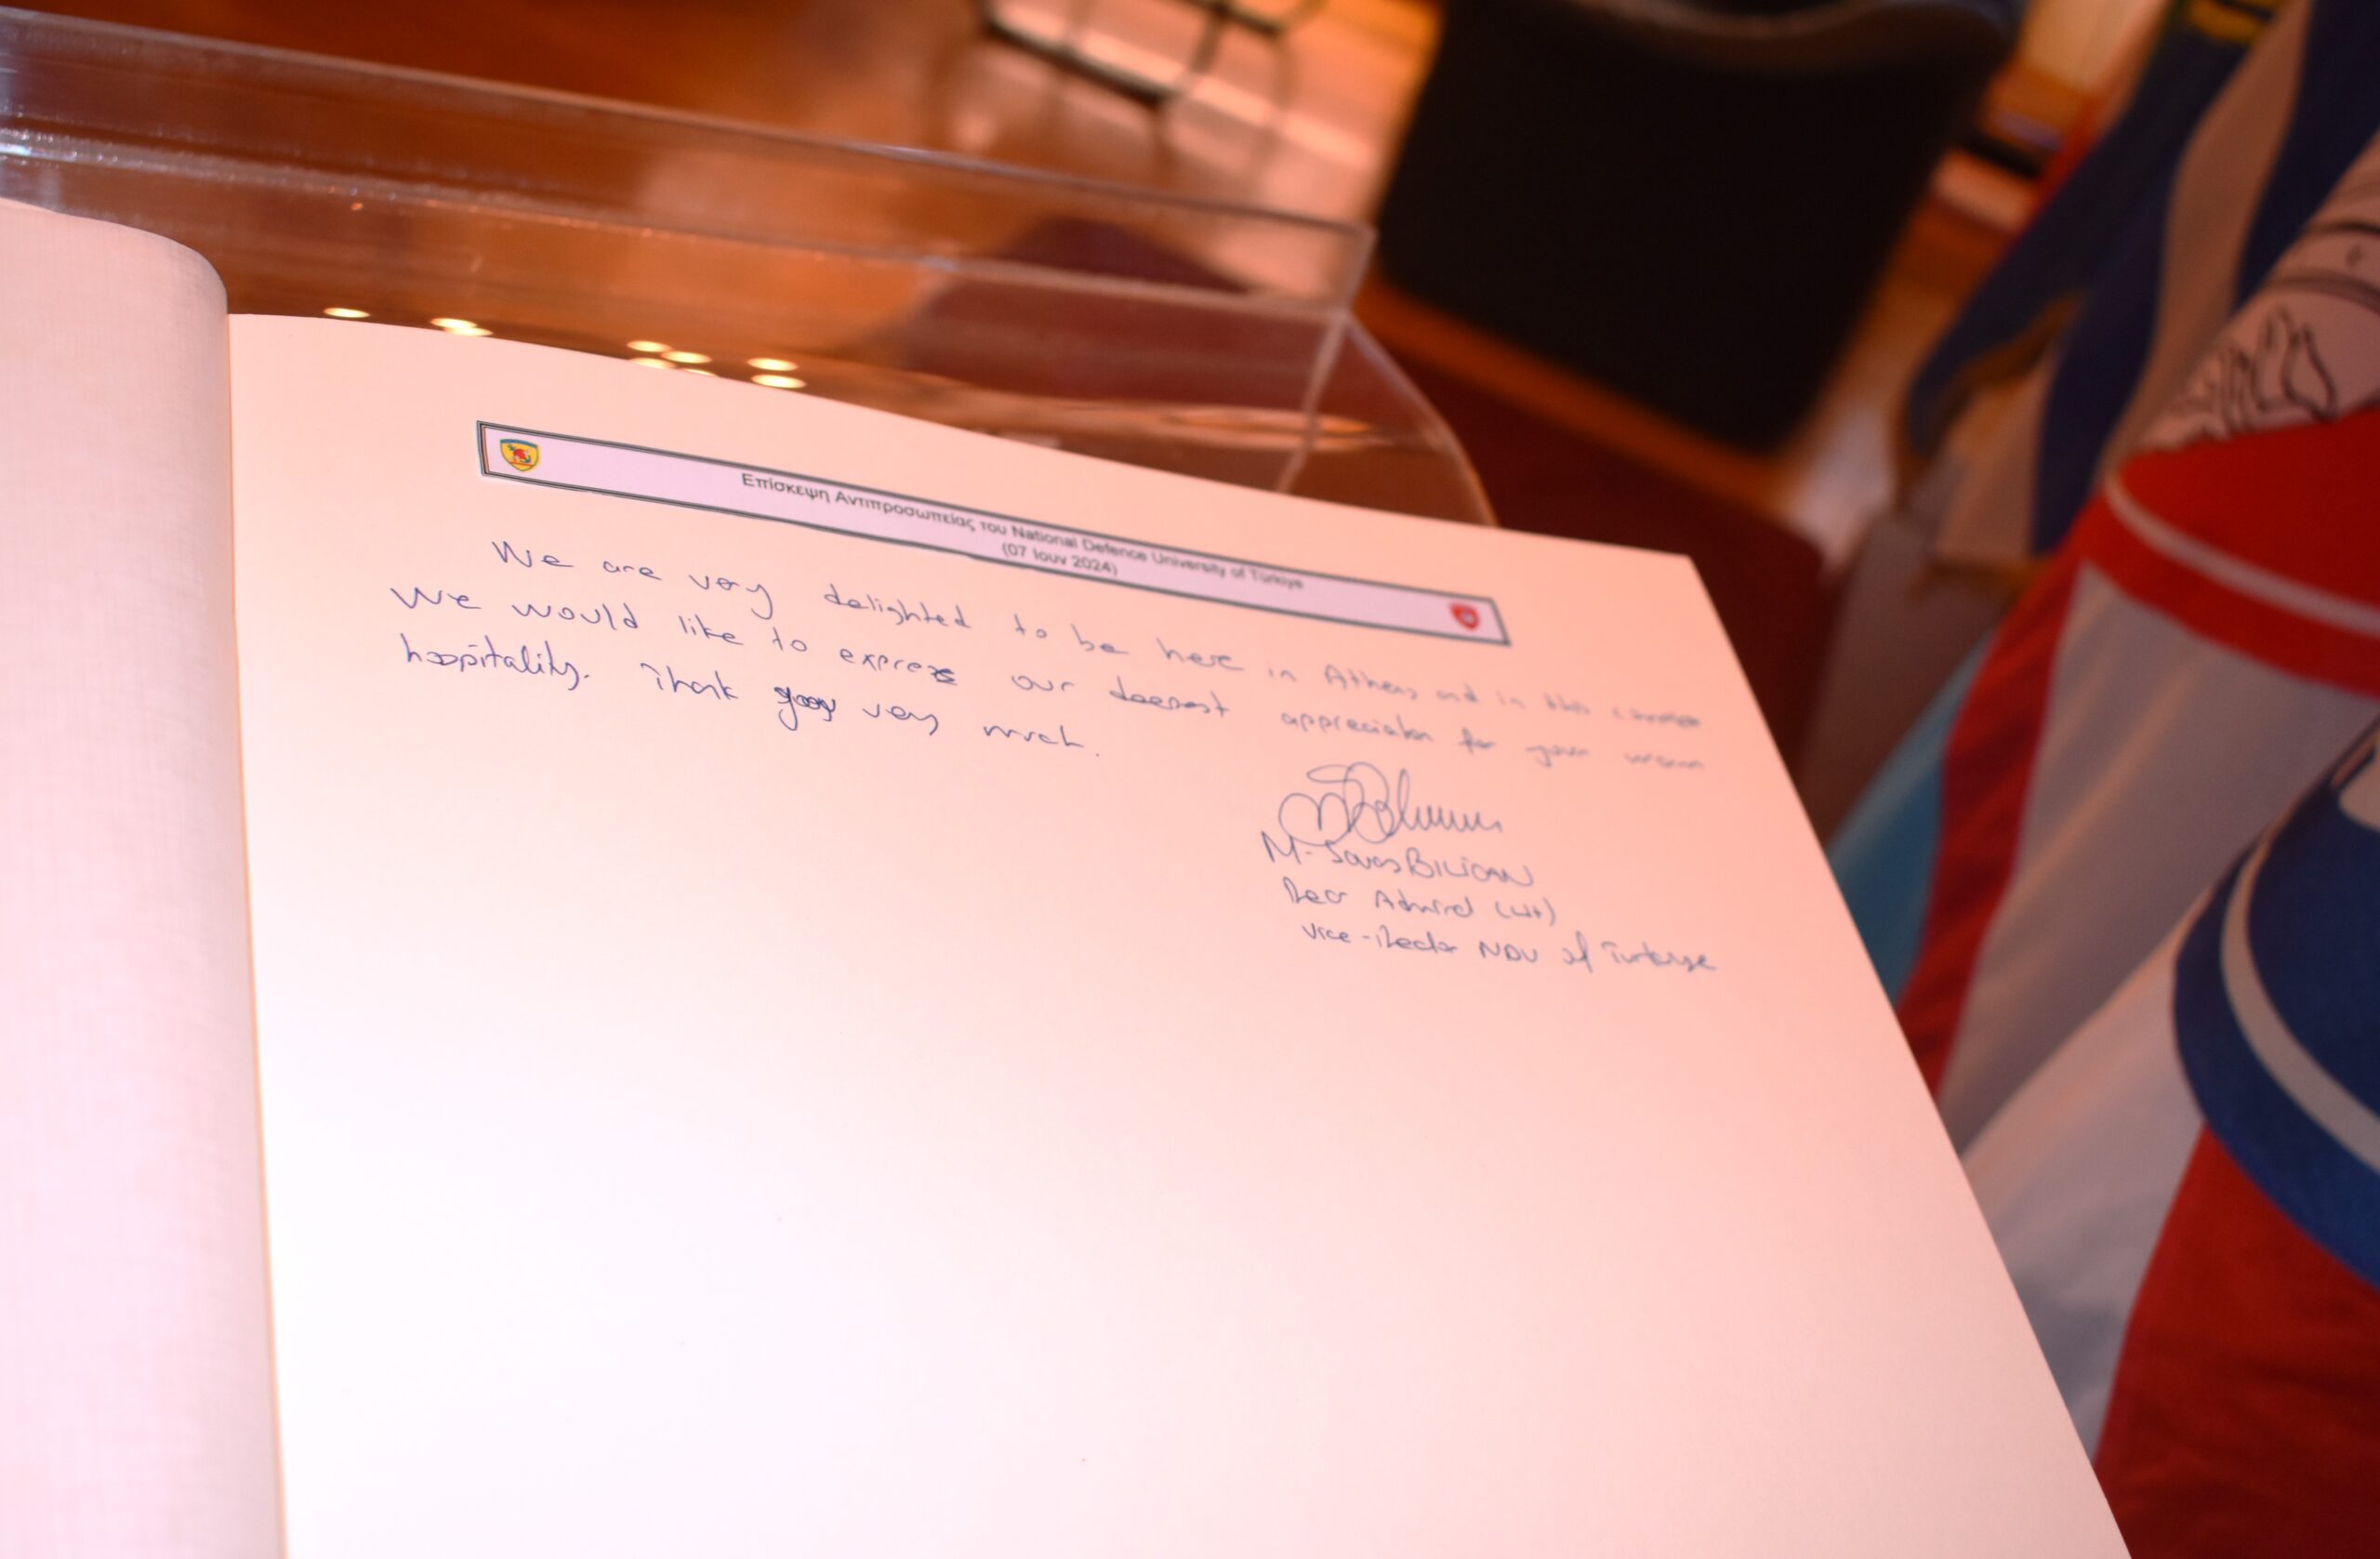 Επίσκεψη Αντιπροσωπείας του National Defence University of Türkiye
(07 Ιουν 2024)
We are very delighted to be here in Athens and in this
We would like to express our deepest appreciation for your warm
hospitality. Thank you very much.
M. Savas BİLİCAN
Rear Admiral (LH)
Vice-Rector NDU of Türkiye